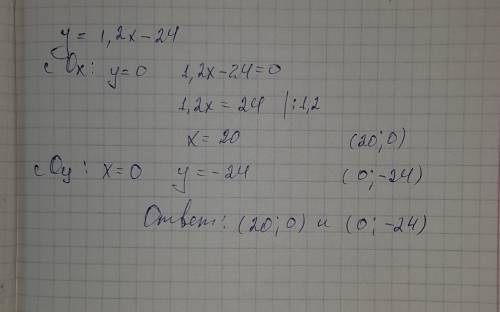 y = 1,2x-24
с Ox: y=0 1,2x-24=0
1,2x = 24 |:1,2
x = 20 (20; 0)
с Oy: x=0 y=-24 (0; -24)
Ответ: (20; 0) и (0; -24)